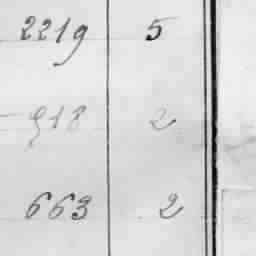 2219 5
918 2
663 2